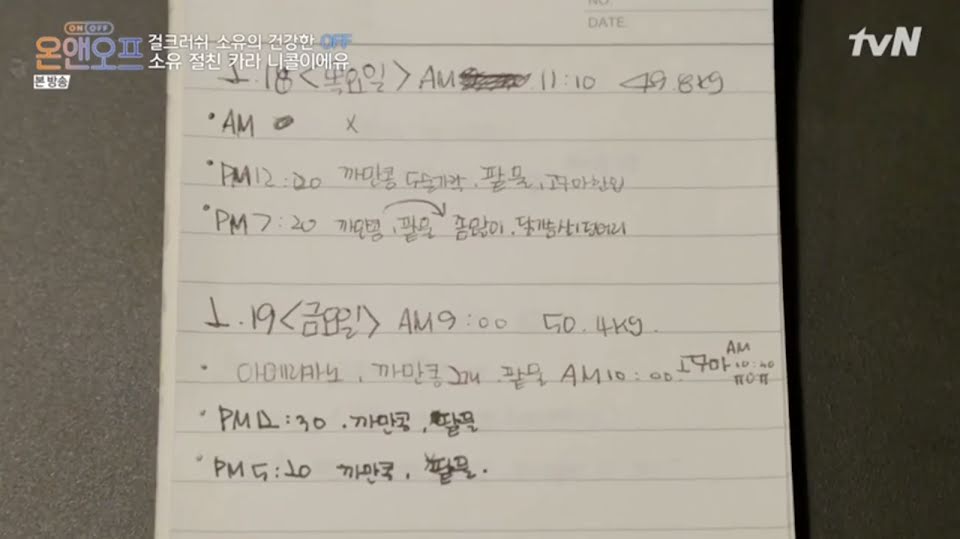 NO.
DATE.
ON OFF
온앤오프
본 방송
걸크러쉬 소유의 건강한 OFF
소유 절친 카라 니콜이에유
tvN
1.18 <목요일> AM 11:10 49.8kg
• AM x
• PM 12:20 까만콩 두숟가락, 팥물, 고구마한입
• PM 7:20 까만콩, 팥물 좀많이, 닭가슴살1덩어리
1.19 <금요일> AM 9:00 50.4kg.
• 아메리카노, 까만콩2개, 팥물 AM 10:00. 고구마 AM 10:40 ㅠㅇㅠ
• PM 1:30 . 까만콩, 팥물
• PM 5:10 까만콕, 팥물.